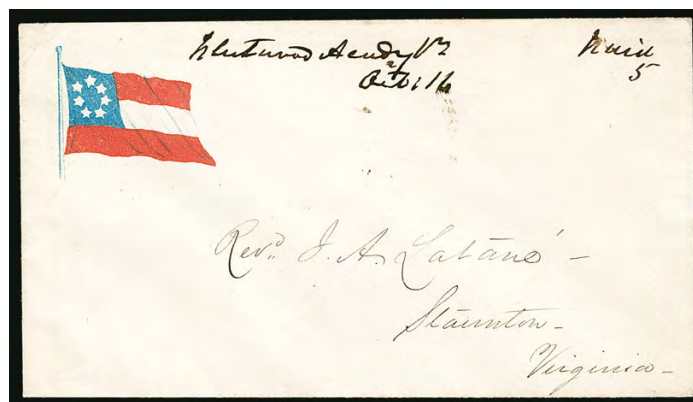 Fleetwood Acady Va
Octo 16
Paid
5
Revd. J. A. Latané -
Staunton -
Virginia -